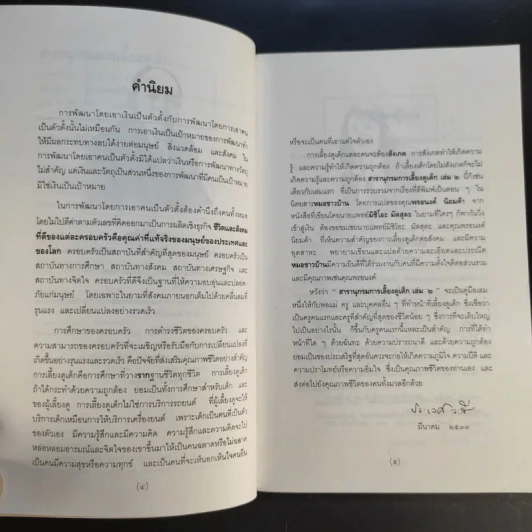 คำนิยม
การพัฒนาโดยเอาเงินเป็นตัวตั้งกับการพัฒนาโดยการเอาคน
เป็นตัวตั้งนั้นไม่เหมือนกัน การเอาเงินเป็นเป้าหมายของการพัฒนาทำ
ให้มีผลกระทบทางลบได้ง่ายต่อมนุษย์ สิ่งแวดล้อม และสังคม ใน
การพัฒนาโดยเอาคนเป็นตัวตั้งมิได้แปลว่าเงินหรือการพัฒนาทางวัตถุ
ไม่สำคัญ แต่เงินและวัตถุเป็นส่วนหนึ่งของการพัฒนาที่มีคนเป็นเป้าหมาย
มิใช่เงินเป็นเป้าหมาย
ในการพัฒนาโดยการเอาคนเป็นตัวตั้งต้องคำนึงถึงคนทั้งหมด
โดยไม่ไปตีค่าตามตัวเลขที่คิดออกมาเป็นการผลิตเชิงธุรกิจ ชีวิตและสังคม
ที่ดีของแต่ละครอบครัวคือคุณค่าที่แท้จริงของมนุษย์ของประเทศและ
ของโลก ครอบครัวเป็นสถาบันที่สำคัญที่สุดของมนุษย์ ครอบครัวเป็น
สถาบันทางการศึกษา สถาบันทางสังคม สถาบันทางเศรษฐกิจ และ
สถาบันทางจิตใจ ครอบครัวที่ดีจึงเป็นฐานที่ให้ความอบอุ่นและปลอด-
ภัยแก่มนุษย์ โดยเฉพาะในยามที่สังคมภายนอกเต็มไปด้วยคลื่นลมที่
รุนแรง และเปลี่ยนแปลงอย่างรวดเร็ว
การศึกษาของครอบครัว การดำรงชีวิตของครอบครัว และ
ความสามารถของครอบครัวที่จะเผชิญหรือรับมือกับการเปลี่ยนแปลงที่
เกิดขึ้นอย่างรุนแรงและรวดเร็ว คือปัจจัยที่ส่งเสริมคุณภาพชีวิตอย่างสำคัญ
การเลี้ยงดูเด็กคือการศึกษาที่วางรากฐานชีวิตทุกชีวิต การเลี้ยงดูเด็ก
ถ้าได้กระทำด้วยความถูกต้อง ย่อมเป็นทั้งการศึกษาสำหรับเด็ก และ
ของผู้เลี้ยงดู การเลี้ยงดูเด็กไม่ใช่การบริการรถยนต์ ที่ผู้เลี้ยงดูจะให้
บริการเด็กเหมือนการให้บริการเครื่องยนต์ เพราะเด็กเป็นคนที่เป็นตัว
ของตัวเอง มีความรู้สึกและมีความคิด ความรู้สึกและความคิดจะไป
หล่อหลอมอารมณ์และจิตใจของเขาขึ้นมาให้เป็นคนฉลาดหรือไม่ฉลาด
เป็นคนมีความสุขหรือความทุกข์ และเป็นคนที่จะเห็นอกเห็นใจคนอื่น
(๔)
หรือจะเป็นคนที่เอาแต่ใจตัวเอง
การเลี้ยงดูเด็กแต่ละคนจะต้องสังเกต การสังเกตทำให้เกิดความ
รู้ และความรู้ทำให้เกิดความถูกต้อง ถ้าเลี้ยงเด็กโดยไม่สังเกตก็จะไม่
เกิดความรู้และความถูกต้อง สารานุกรมการเลี้ยงดูเด็ก เล่ม ๒ นี้ก็เช่น
เดียวกับเล่มแรก ที่เป็นการรวบรวมจากเรื่องที่ตีพิมพ์เป็นตอน ๆ ใน
นิตยสารหมอชาวบ้าน โดยการแปลของคุณพรอนงค์ นิยมค้า จาก
หนังสือที่เขียนโดยนายแพทย์มิชิโอะ มัตสุดะ ในยามที่ใคร ๆ ก็พากันวิ่ง
เข้าสู่เงิน ต้องขอชมเชยนายแพทย์มิชิโอะ มัตสุดะ และคุณพรอนงค์
นิยมค้า ที่เห็นความสำคัญของการเลี้ยงดูเด็กต่อสังคม และมีความ
อุตสาหะ พยายามเขียนและแปลเรื่องที่เป็นประโยชน์และละเอียด
หมอชาวบ้านมีความยินดีที่ได้ร่วมงานกับคนที่มีความตั้งใจดีต่อส่วนรวม
และมีคุณภาพเช่นคุณพรอนงค์
หวังว่า " สารานุกรมการเลี้ยงดูเด็ก เล่ม ๒ " จะเป็นคู่มือเสมอ
หนึ่งให้กับพ่อแม่ ครู และบุคคลอื่น ๆ ที่ทำหน้าที่เลี้ยงดูเด็ก ซึ่งเชื่อว่า
เป็นครูคนแรกและครูที่สำคัญที่สุดของชีวิตน้อย ๆ ซึ่งการที่จะเติบใหญ่
ไปเป็นอย่างไรนั้น ก็ขึ้นกับครูคนแรกนี้แหละเป็นสำคัญ การที่ได้ทำ
หน้าที่ใด ๆ ด้วยฉันทะ ด้วยความปรารถนาดี และด้วยความถูกต้อง
ย่อมเป็นของประเสริฐที่สุดอันควรจะก่อให้เกิดความภูมิใจ ความปีติ และ
ความปราโมทย์หรือความอิ่มใจ ซึ่งเป็นคุณภาพชีวิตของท่านเอง และ
ส่งต่อไปยังคุณภาพชีวิตของคนทั้งมวลอีกด้วย
ประเวศ วะสี
มีนาคม ๒๕๓๓
(๕)